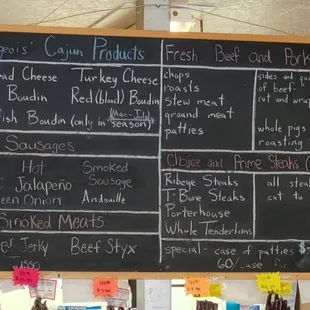 geois' Cajun Products
ad Cheese Turkey Cheese
Boudin Red (blood) Boudin
fish Boudin (only in season)
Sausages
Hot Smoked
Jalapeño Sausage
een Onion Andouille
Smoked Meats
Jerky Beef Styx
Fresh Beef and Pork
chops
roasts
stew meat
ground meat
patties
sides and
of beef-
cut and wra
whole pigs
roasting
Choice and Prime Steaks
Ribeye Steaks
T-Bone Steaks
Porterhouse
Whole Tenderloins
all steak
cut to
special- case of patties
60/case